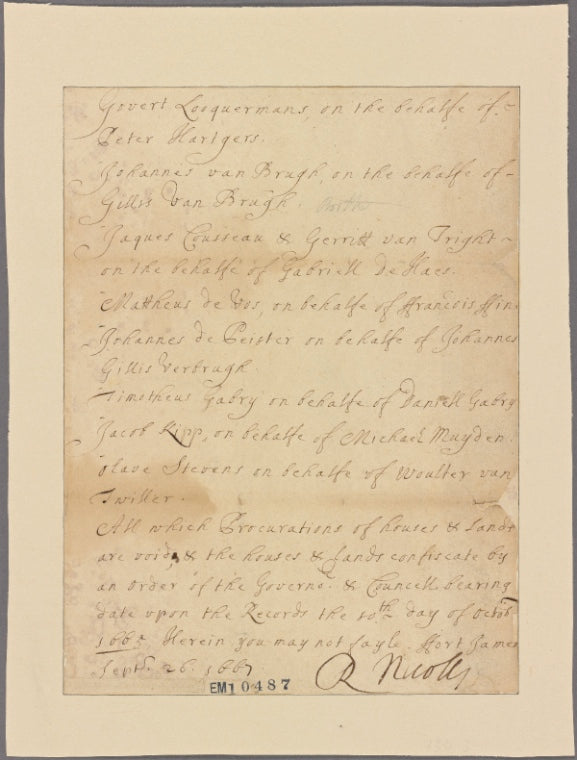 Govert Looquermans, on the behalfe of
Peter Hartgers.
Johannes van Brugh, on the behalfe of
Gillis Van Brugh.
Jaques Cousseau & Gerritt van Tright
on the behalfe of Gabriell De Haes.
Mattheus de Vos, on behalfe of ffrancois ffin
Johannes de Peister on behalfe of Johannes
Gillis Verbrugh.
Timotheus Gabry on behalfe of Daniell Gabry
Jacob Kipp, on behalfe of Michael Muyden.
Olave Stevens on behalfe of Woulter van
Twiller.
All which Procurations of houses & Lands
are void, & the houses & Lands confiscate by
an order of the Governor. & Councell bearing
date upon the Records the 10th day of Octob
1665. Herein you may not fayle. ffort James
Septr. 26. 1667
R Nicolls
EM10487